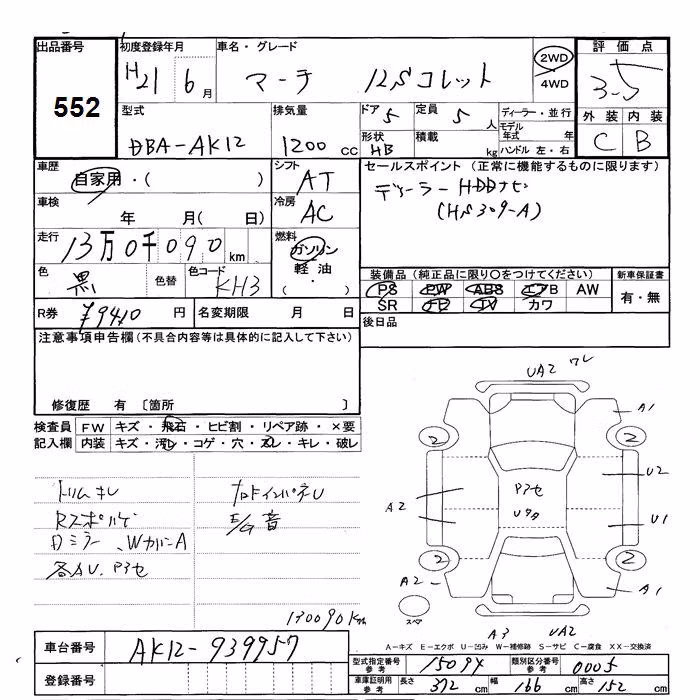 出品番号
552
初度登録年月
H21 6月
車名・グレード
マーチ 12Sコレット
2WD
4WD
評価点
3.5
外装 内装
C B
型式
DBA-AK12
排気量
1200 cc
ドア 5
定員 5 人
形状 HB
積載 kg
ディーラー・並行
モデル年式 年
ハンドル 左・右
車歴
自家用・( )
シフト
AT
セールスポイント (正常に機能するものに限ります)
ディーラーHDDナビ
(HS309-A)
車検
年 月( 日)
冷房
AC
走行
13万0千090 km
燃料
ガソリン
軽油
・( )
色
黒
色替
色コード
KH3
装備品 (純正品に限り○をつけてください)
PS PW ABS エアB AW
SR TV カワ
新車保証書
有・無
R券 ¥9410 円
名変期限 月 日
後日品
注意事項申告欄(不具合内容等は具体的に記入して下さい)
修復歴 有 〔箇所 〕
検査員記入欄
FW キズ・飛石・ヒビ割・リペア跡・×要
内装 キズ・汚レ・コゲ・穴・スレ・キレ・破レ
Rスポ
Dミラー、WカバーA
各AU、P3セ
音
130090Km
UA2 ワレ
A1
2
2
U2
A2
P3セ
U1
2
2
A2
A1
スペア
A3 UA2
A-キズ E-エクボ U-凹み W-補修跡 S-サビ C-腐食 XX-交換済
車台番号
AK12-939957
登録番号
型式指定番号 参考 15094
類別区分番号 参考 0005
車庫証明用 参考
長さ 372 cm
幅 166 cm
高さ 152 cm